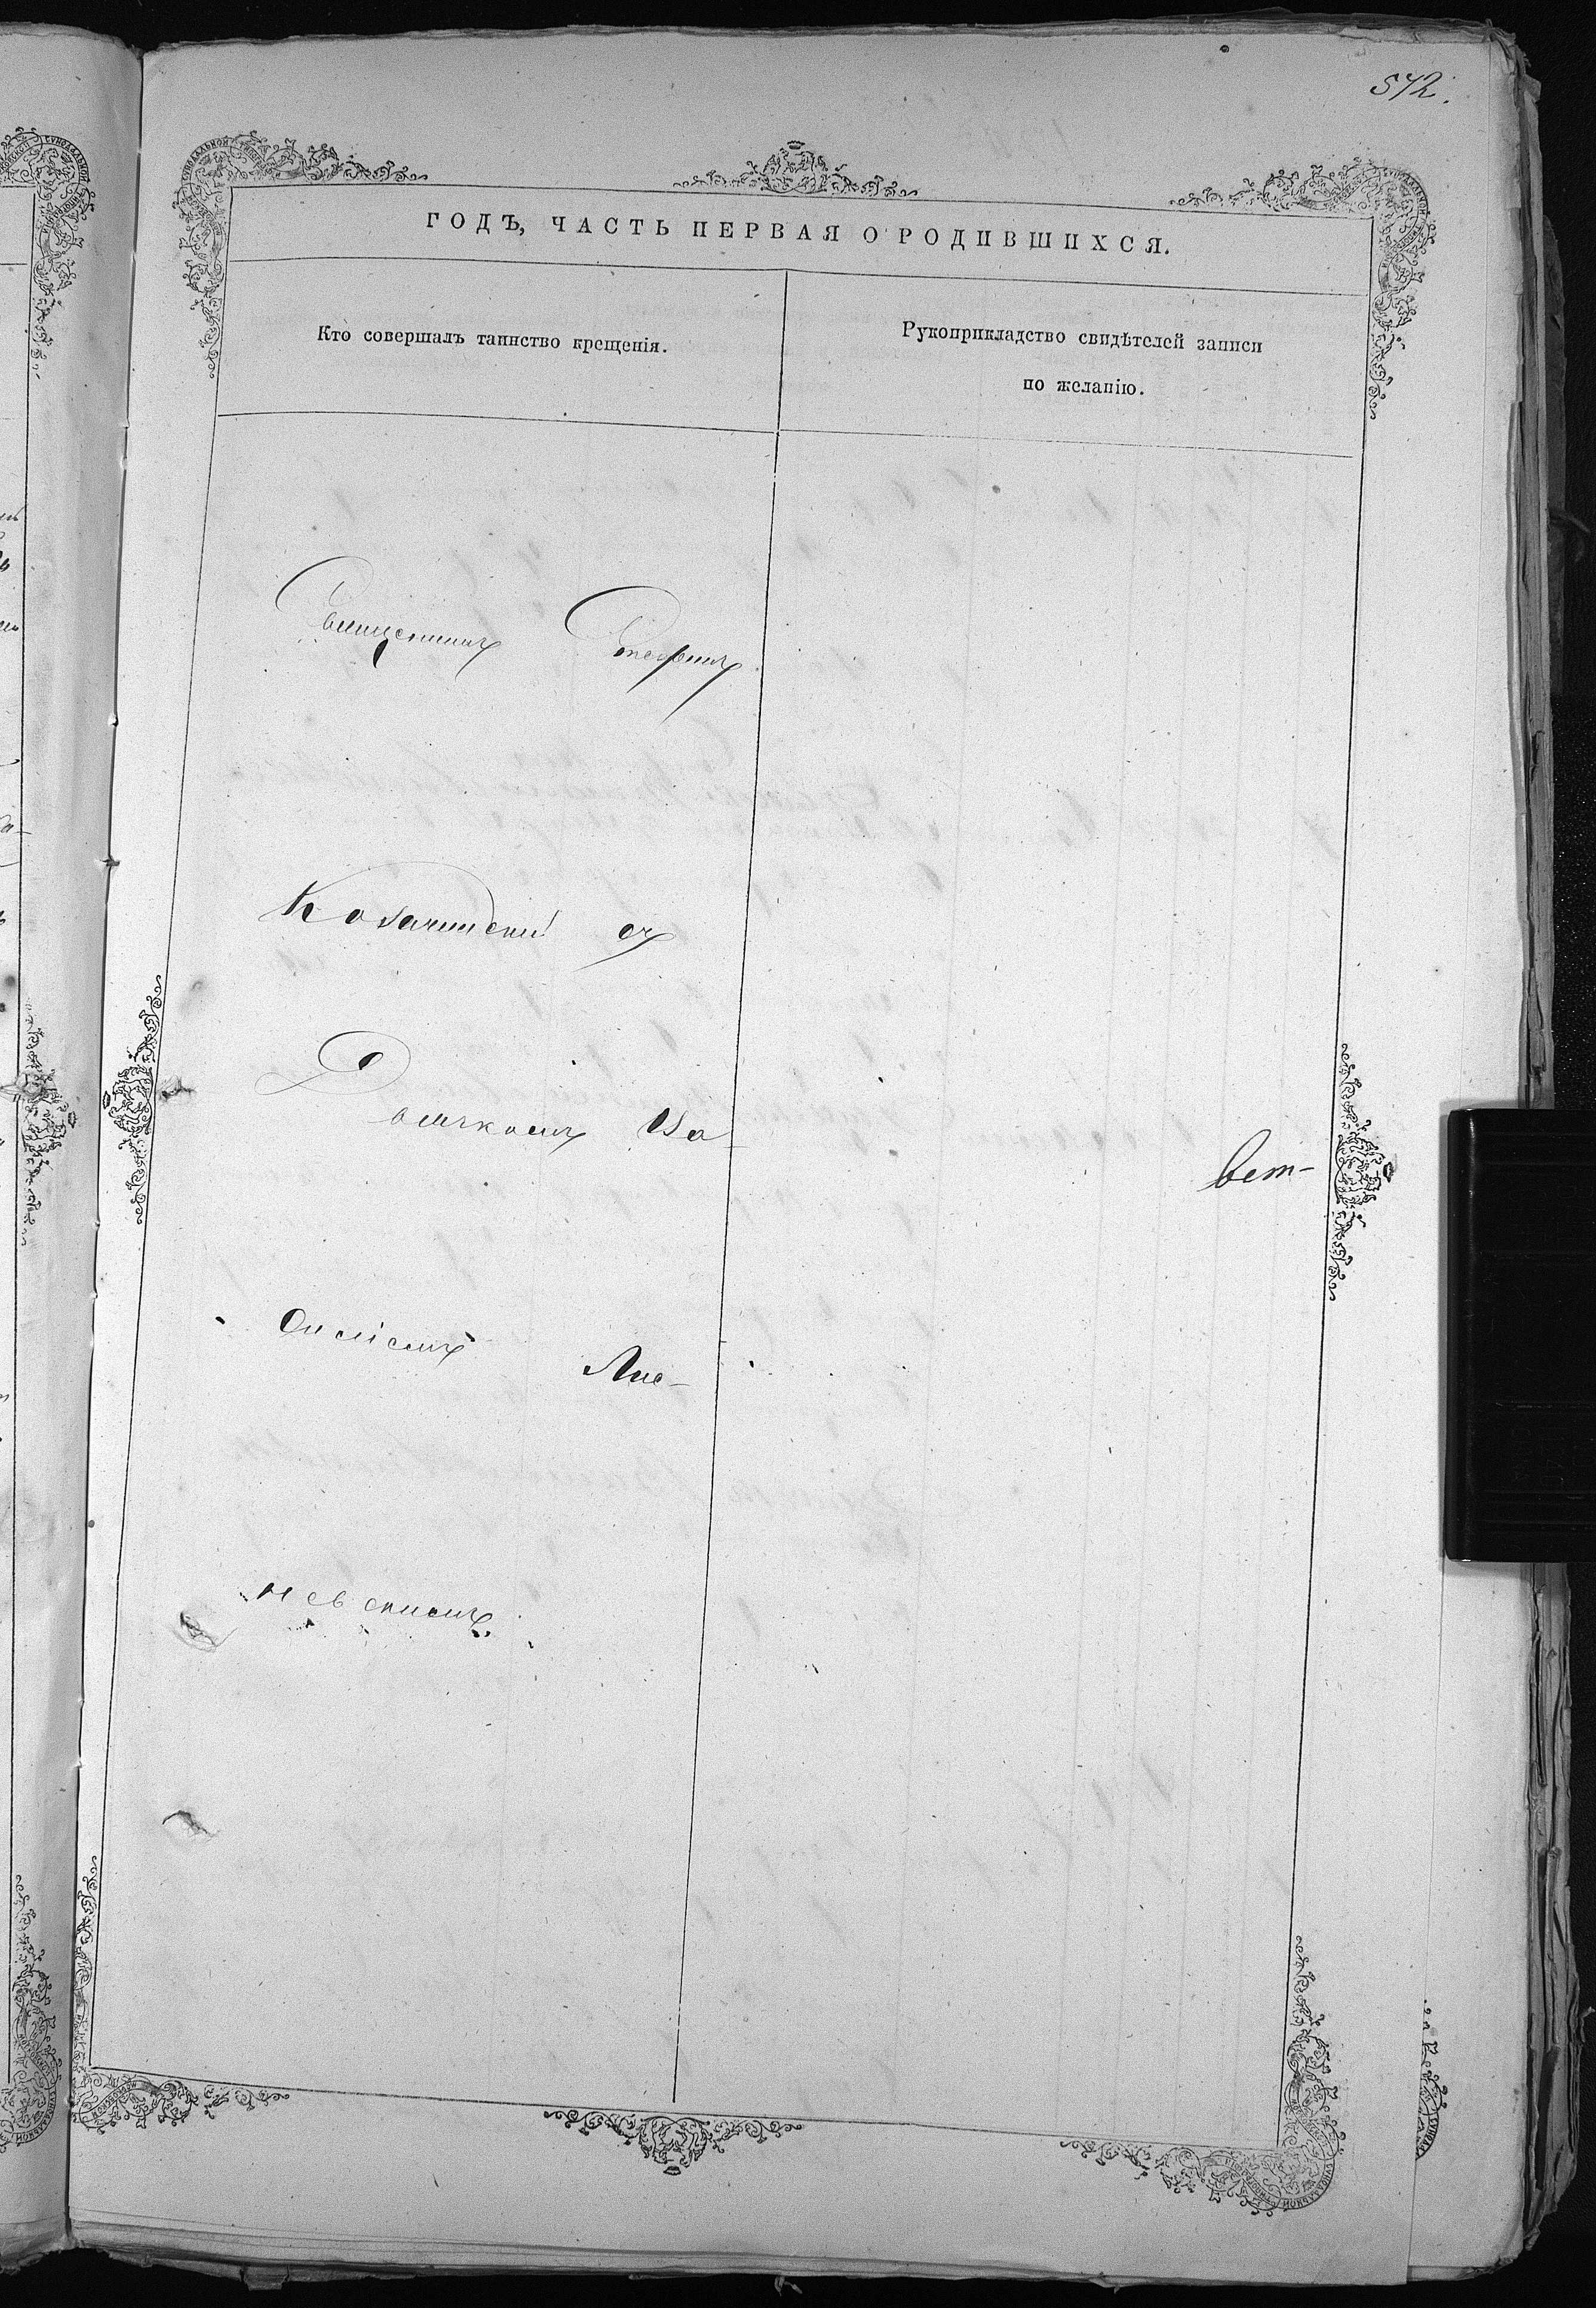 572.
ГОДЪ, ЧАСТЬ ПЕРВАЯ О РОДИВШИХСЯ.
Кто совершалъ таинство крещенія.
Рукоприкладство свидѣтелей записи
по желанію.
Священникъ Стефанъ
Козачинскій съ
Дьячкомъ
вет-
Онисімъ Лис-
невскимъ.